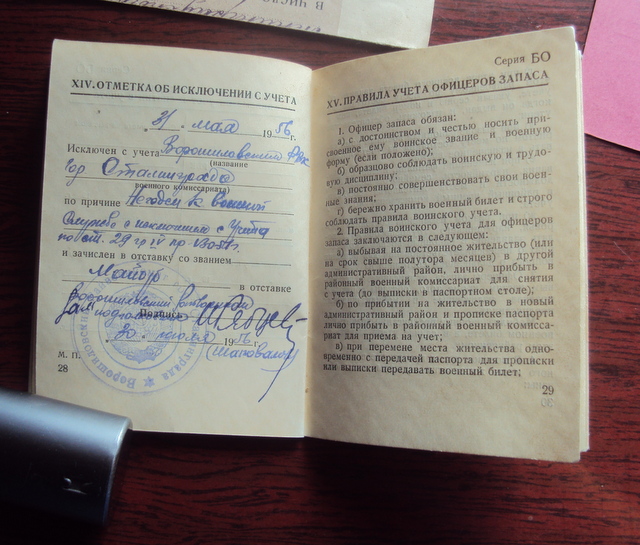 В числе
XIV. ОТМЕТКА ОБ ИСКЛЮЧЕНИИ С УЧЕТА
31 мая 1956 г.
Исключен с учета Ворошиловский РВК
(название
гор Сталинграда
военного комиссариата)
по причине Негоден к военной
службе с исключением с учета
по ст. 29 гр IV пр
и зачислен в отставку со званием
Майор
в отставке
Ворошиловский
Подпись
30 июля 1956
(Шаповалов)
М. П.
28
Серия БО
XV. ПРАВИЛА УЧЕТА ОФИЦЕРОВ ЗАПАСА
1. Офицер запаса обязан:
а) с достоинством и честью носить при-
своенное ему воинское звание и военную
форму (если положено);
б) образцово соблюдать воинскую и трудо-
вую дисциплину;
в) постоянно совершенствовать свои воен-
ные знания;
г) бережно хранить военный билет и строго
соблюдать правила воинского учета.
2. Правила воинского учета для офицеров
запаса заключаются в следующем:
а) выбывая на постоянное жительство (или
на срок свыше полутора месяцев) в другой
административный район, лично прибыть в
районный военный комиссариат для снятия
с учета (до выписки в паспортном столе);
б) по прибытии на жительство в новый
административный район и прописке паспорта
лично прибыть в районный военный комисса-
риат для приема на учет;
в) при перемене места жительства одно-
временно с передачей паспорта для прописки
или выписки передавать военный билет;
29